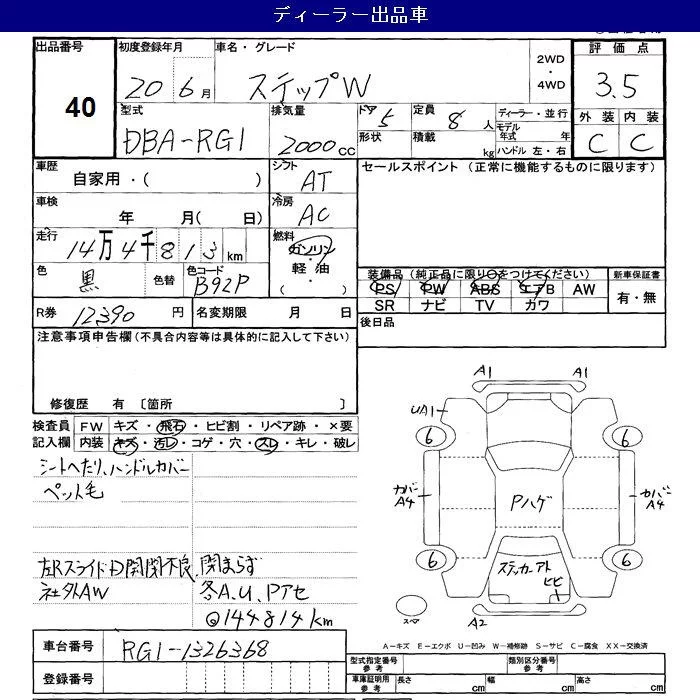 ディーラー出品車
出品番号 40
初度登録年月 20 6月
車名・グレード ステップW
2WD・4WD
評価点 3.5
外装 C 内装 C
型式 DBA-RG1
排気量 2000cc
ドア 5 形状
定員 8人 積載 kg
ディーラー・並行
モデル年式 年式
ハンドル 左・右
車歴 自家用・( )
シフト AT
セールスポイント (正常に機能するものに限ります)
車検 年 月( 日)
冷房 AC
走行 14万4千813km
燃料 ガソリン・軽油・( )
色 黒 色替
色コード B92P
装備品(純正品に限り○をつけてください)
PS PW ABS エアB AW
SR ナビ TV カワ
新車保証書 有・無
R券 12390円
名変期限 月 日
後日品
注意事項申告欄(不具合内容等は具体的に記入して下さい)
修復歴 有 〔箇所 〕
検査員記入欄
FW キズ・飛石・ヒビ割・リペア跡・×要
内装 キズ・汚レ・コゲ・穴・スレ・キレ・破レ
シートへたり、ハンドルカバー
ペット毛
左Rスライド D開閉不良、閉まらず
社外AW 各A.U.Pアセ
@144814km
A1 A1
UA1
6 6
カバーA4 Pハゲ カバーA4
6 6
ステッカーアト
ヒビ
スペア A2
A-キズ E-エクボ U-凹み W-補修跡 S-サビ C-腐食 XX-交換済
車台番号 RG1-1326368
登録番号
型式指定番号 参考 類別区分番号 参考
車庫証明用 参考 長さ cm 幅 cm 高さ cm